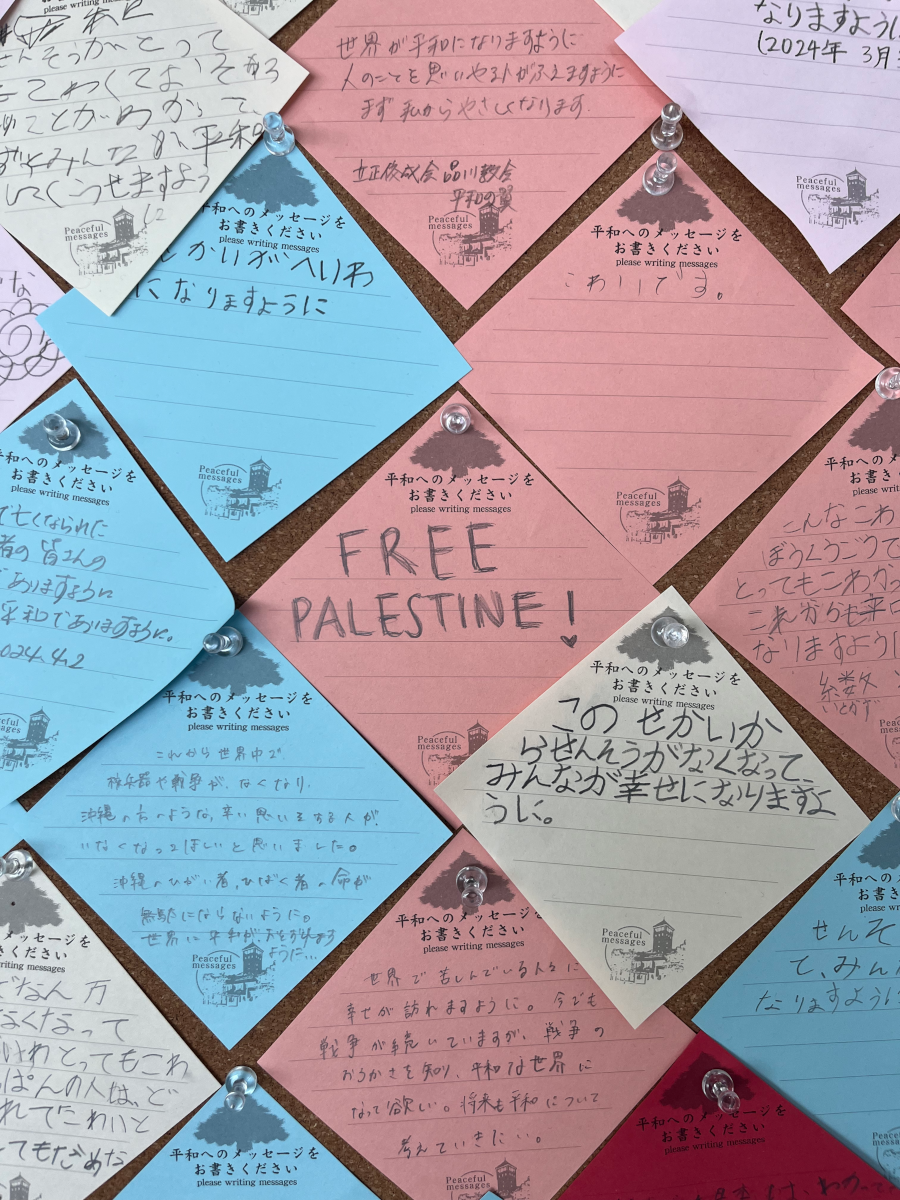 please writing messages
世界が平和になりますように
人のことを思いやる人がふえますように
まず私からやさしくなります。
立正佼成会 品川教会
平和の翼
Peaceful
messages
なりますように
(2024年 3月
Peaceful
messages
せんそうがとって
もこわくてよ
とがわかって
みんなが平和
しくらせますよう
に
Peaceful
messages
平和へのメッセージを
お書きください
please writing messages
せかいがへいわ
になりますように
Peaceful
messages
平和へのメッセージを
お書きください
please writing messages
こわいです。
Peaceful
messages
平和へのメッセージを
お書きください
please writing messages
FREE
PALESTINE!
Peaceful
messages
平和へのメッセージを
お書きください
please writing messages
て亡くなられた
者の皆さんの
でありますように
平和でありますように。
2024.4.2
Peaceful
messages
平和への
お書き
please
こんなこわ
ぼうくうごうで
とってもこわかっ
これからも幸
なりますように
いとかず
Peaceful
messages
平和へのメッセージを
お書きください
please writing messages
これから世界中で
核兵器や戦争が、なくなり、
沖縄の方のような、辛い思いをする人が、
いなくなってほしいと思いました。
沖縄のひがい者、ひばく者の命が
無駄にならないように。
世界に平和がおとずれます
ように...
Peaceful
messages
平和へのメッセージを
お書きください
please writing messages
このせかいか
らせんそうがなくなって、
みんなが幸せになりますよ
うに。
Peaceful
messages
平和へのメッセージを
お書きください
please writing messages
世界で苦しんでいる人々に
幸せが訪れますように。今でも
戦争が続いていますが、戦争の
おろかさを知り、平和な世界に
なって欲しい。将来も平和について
考えていきたい。
Peaceful
messages
平和への
お書き
please writing
せんそ
て、みん
なりますように
Peaceful
messages
のメッセージを
ください
please writing messages
万
なくなって
いわとってもこわ
っぱんの人は、ど
れてこわいと
てもだめだ
平和へのメッセージを
お書きください
please writing messages
平和へのメッセージを
お書きください
please writing messages